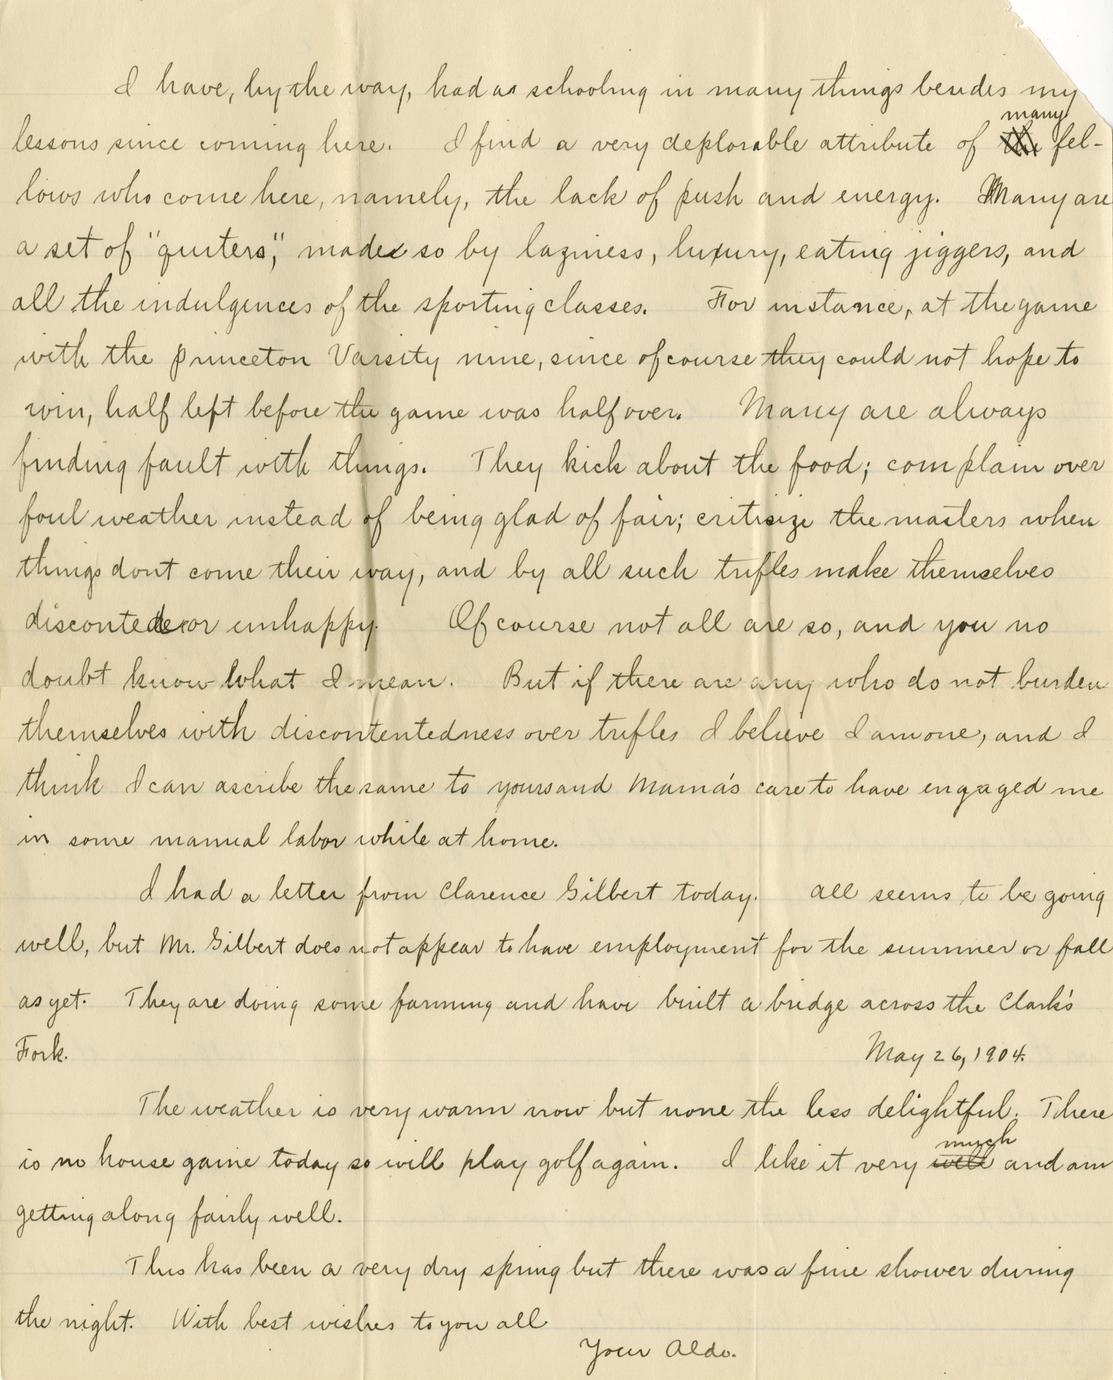 I have, by the way, had as schooling in many things besides my
many
lessons since coming here. I find a very deplorable attribute of the fel-
lows who come here, namely, the lack of push and energy. Many are
a set of "quiters", made so by laziness, luxury, eating jiggers, and
all the indulgences of the sporting classes. For instance, at the game
with the Princeton Varsity nine, since of course they could not hope to
win, half left before the game was half over. Many are always
finding fault with things. They kick about the food; complain over
foul weather instead of being glad of fair; critisize the masters when
things dont come their way, and by all such trifles make themselves
disconteder or unhappy. Of course not all are so, and you no
doubt know what I mean. But if there are any who do not burden
themselves with discontentedness over trifles I believe I am one, and I
think I can ascribe the same to yours and Mama's care to have engaged me
in some manual labor while at home.
I had a letter from Clarence Gilbert today. All seems to be going
well, but Mr. Gilbert does not appear to have employment for the summer or fall
as yet. They are doing some farming and have built a bridge across the Clark's
Fork. May 26, 1904.
The weather is very warm now but none the less delightful. There
much
is no house game today so will play golf again. I like it very well and am
getting along fairly well.
This has been a very dry spring but there was a fine shower during
the night. With best wishes to you all
Your Aldo.